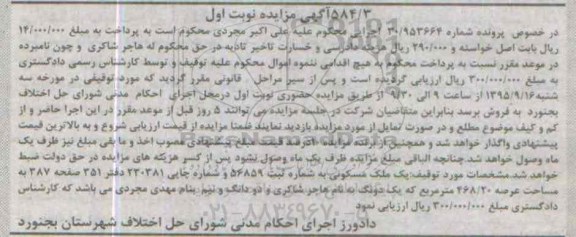 ۵۸۴/۳آگهی مزایده نوبت اول
در خصوص پرونده شماره ۳۰/۹۵۳۶۶۴ اجرایی محکوم علیه علی اکبر مجردی محکوم است به پرداخت به مبلغ ۱۴/۰۰۰/۰۰۰
ریال بابت اصل خواسته و ۲۹۰/۰۰۰ ریال هزینه دادرسی و خسارت تاخیر تادیه در حق محکوم له هاجر شاکری و چون نامبرده
در موعد مقرر نسبت به پرداخت محکوم به هیچ اقدامی ننموده اموال محکوم علیه توقیف و توسط کارشناس رسمی دادگستری
به مبلغ ۳۰۰/۰۰۰/۰۰۰ ریال ارزیابی گردیده است و پس از سیر مراحل قانونی مقرر گردید که مورد توقیفی در مورخه سه
شنبه۱۳۹۵/۹/۱۶ از ساعت ۹ الی ۹/۳۰ از طریق مزایده حضوری نوبت اول درمحل اجرای احکام مدنی شورای حل اختلاف
بجنورد به فروش برسد بنابراین متقاضیان شرکت در جلسه مزایده می توانند ۵ روز قبل از موعد مقرر در این اجرا حاضر و از
کم و کیف موضوع مطلع و در صورت تمایل از مورد مزایده بازدید نمایند ضمنا مزایده از قیمت ارزیابی شروع و به بالاترین قیمت
پیشنهادی واگذار خواهد شد و همچنین از برنده مزایده ۱۰درصد قیمت مبلغ پیشنهادی مصوب اخذ و مابقی مبلغ نیز ظرف یک
ماه وصول خواهد شد.چنانچه الباقی مبلغ مزایده ظرف یک ماه وصول نشود پس از کسر هزینه های مزایده در حق دولت ضبط
خواهد شد.مشخصات مورد توقیف:یک ملک مسکونی به شماره ثبت ۵۶۸۵۹ و شماره چاپی ۲۳۰۳۸۱ دفتر ۳۵۱ صفحه ۳۸۷ به
مساحت عرصه ۴۶۸/۲۰ مترمربع که یک دونگ به نام هاجر شاکری و دو دانگ و نیم بنام مهدی مجردی می باشد که کارشناس
دادگستری مبلغ ۳۰۰/۰۰۰/۰۰۰ ریال ارزیابی نمود
دادورز اجرای احکام مدنی شورای حل اختلاف شهرستان بجنورد
۰۲۱-۸۸۳۴۹۶۷۰